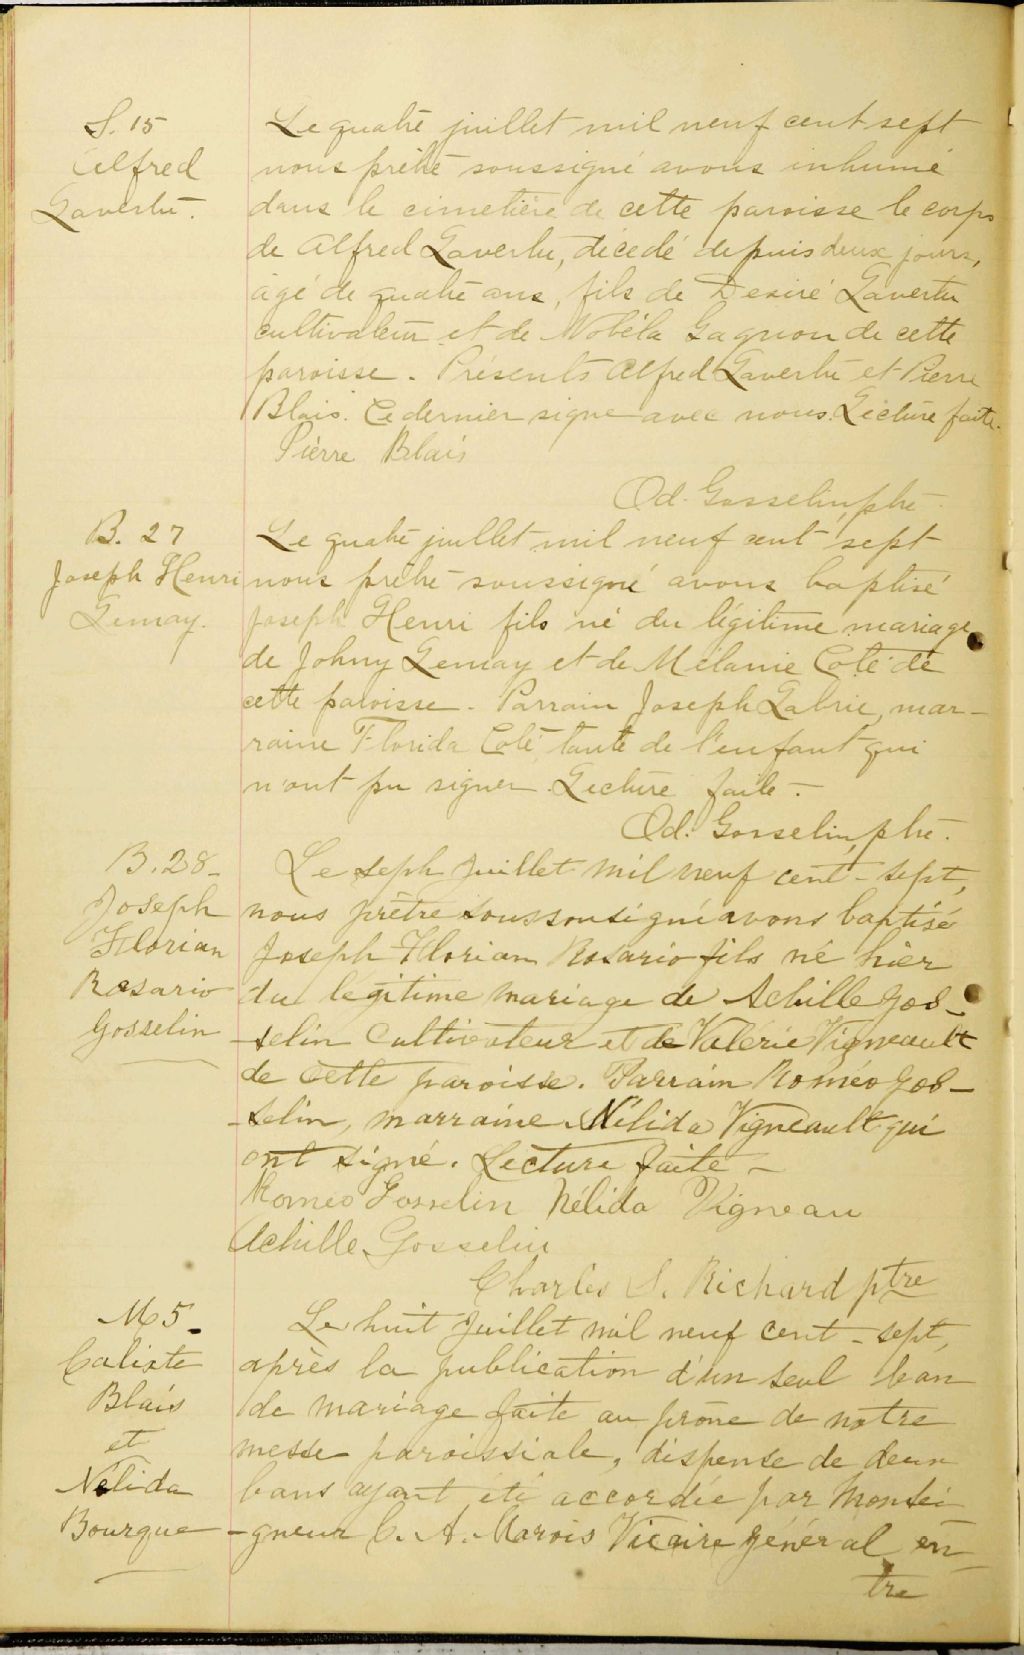 S. 15
Alfred
Lavertu.
Le quatre juillet mil neuf cent sept
nous prêtre soussigné avons inhumé
dans le cimetière de cette paroisse le corps
de Alfred Lavertu, décédé depuis deux jours,
âgé de quatre ans, fils de Désiré Lavertu
cultivateur et de Nobéla Gagnon de cette
paroisse. Présents Alfred Lavertu et Pierre
Blais. Ce dernier signe avec nous. Lecture faite.
Pierre Blais
Od. Gosselin, ptre
B. 27
Joseph Henri
Lemay.
Le quatre juillet mil neuf cent sept
nous prêtre soussigné avons baptisé
Joseph Henri fils né du légitime mariage
de Johny Lemay et de Mélanie Coté de
cette paroisse. Parrain Joseph Labrie, mar-
raine Florida Coté tante de l'enfant qui
n'ont pu signer. Lecture faite.
Od. Gosselin, ptre.
B. 28-
Joseph
Florian
Rosario
Gosselin
Le sept juillet mil neuf cent-sept,
nous prêtre soussousigné avons baptisé
Joseph Florian Rosario fils né hier
du légitime mariage de Achille Gos-
-selin cultivateur et de Valérie Vigneault
de cette paroisse. Parrain Roméo Gos-
-selin, marraine Nélida Vigneault qui
ont signé. Lecture faite -
Romeo Gosselin Nélida Vigneau
Achille Gosselin
Charles S. Richard ptre
M 5-
Calixte
Blais
et
Nélida
Bourque
Le huit juillet mil neuf cent-sept,
après la publication d'un seul ban
de mariage faite au prône de notre
messe paroissiale, dispense de deux
bans ayant été accordée par Monsei
-gneur C. A. Marois Vicaire général en-
tre